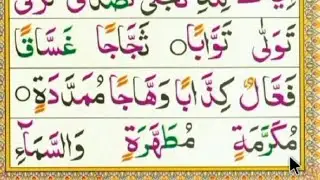 تَوَلّٰى تَوَّابًا ○ ثَجَّاجًا غَسَّاقًا
فَعَّالٌ كِذَّابًا وَهَّاجًا مُمَدَّدَةٍ ○
مُكَرَّمَةٍ مُطَهَّرَةٍ وَالسَّمَآءِ